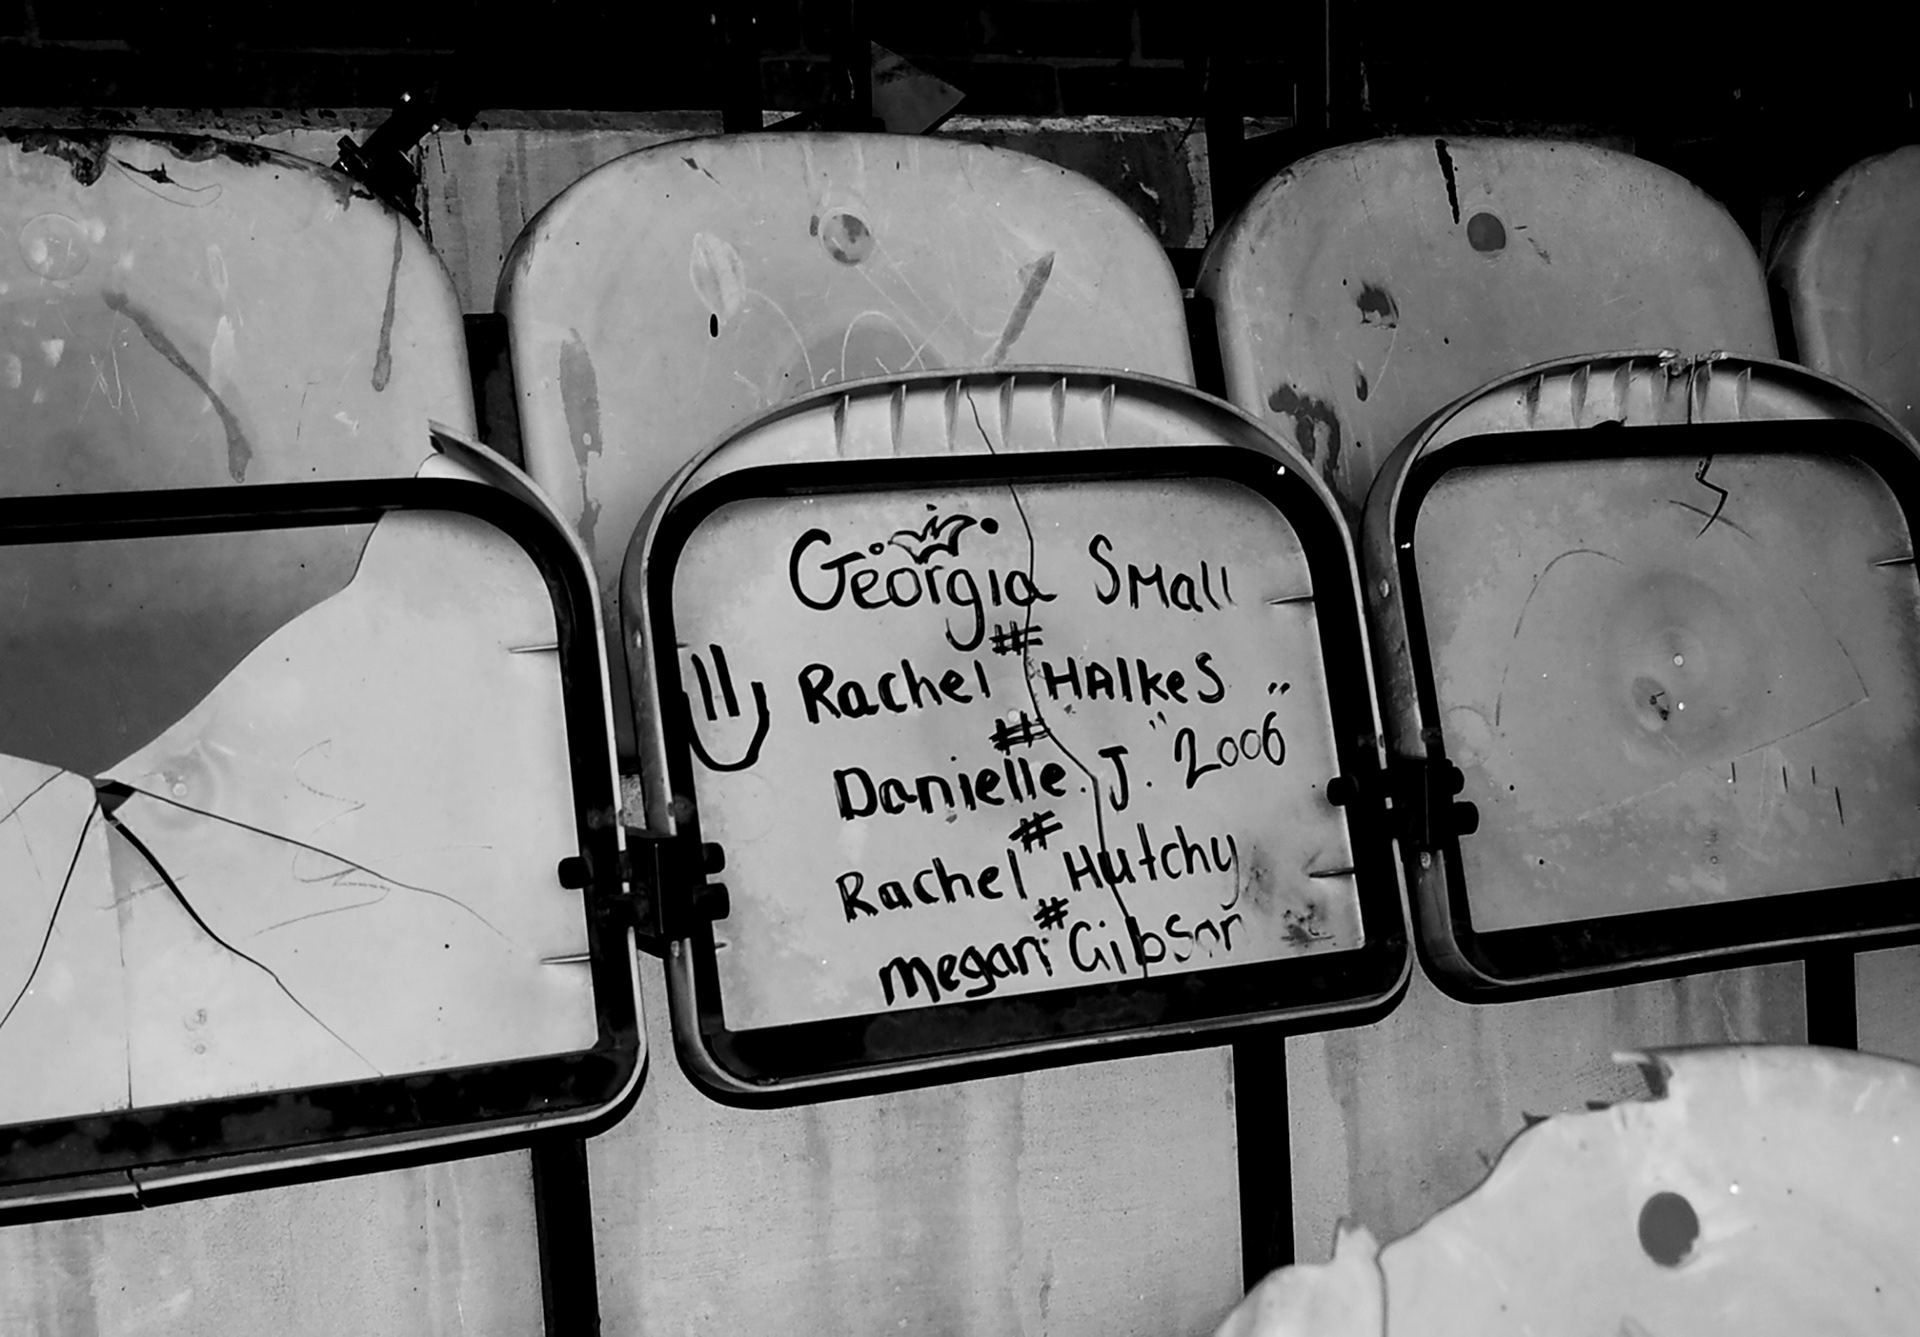 Georgia Small
#
Rachel HAlkeS
#
Danielle. J. "2006"
#
Rachel Hutchy
#
megan Gibson